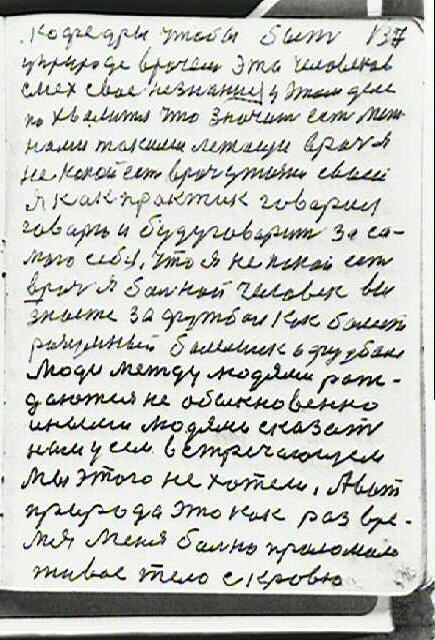 кафедры чтобы быть 137
у природе врачем эта человеков
смех свое незнание у этом деле
по хвалится что значит ест
нами такими летающи врач я
не какой ест врач
я как практик говарил
говарю и будуговарит за са-
мого себя, что я не какой ест
врач я балной человек вы
знаете за дружбаи как
разумный
Люди между людями раж-
даются не обыкновенно
иными людями сказат
нам у сем встречающем
мы этого не хотели, Авот
природа это как раз вре-
мя меня бално праломало
живое тело скровю